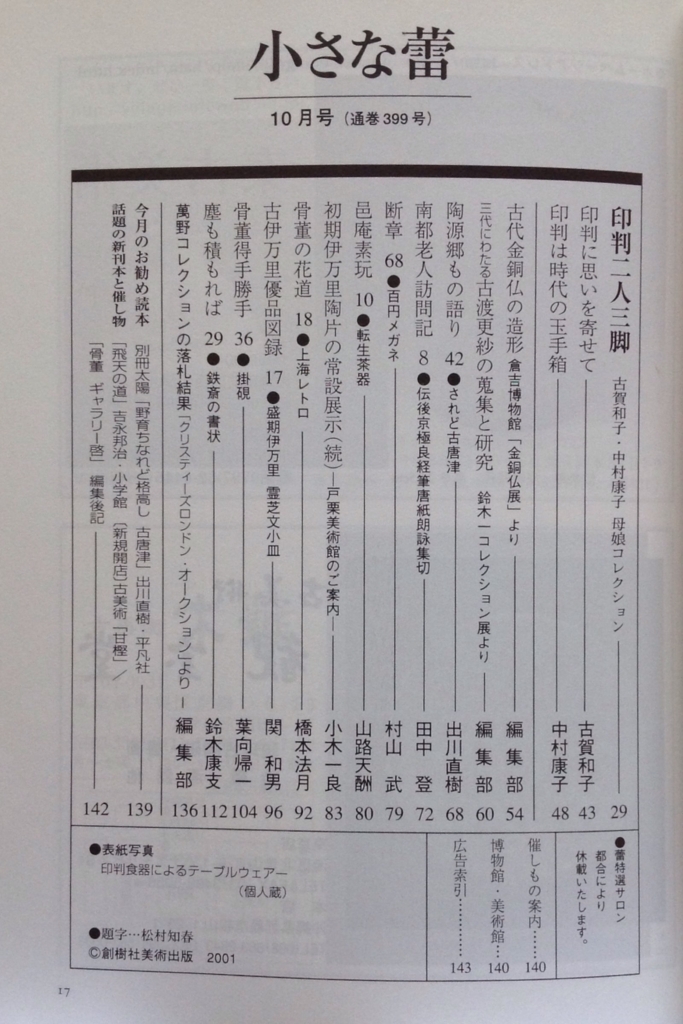 小さな蕾
10月号（通巻399号）
印判二人三脚 古賀和子・中村康子 母娘コレクション 29
印判に思いを寄せて 古賀和子 43
印判は時代の玉手箱 中村康子 48
古代金銅仏の造形 倉吉博物館「金銅仏展」より 編集部 54
三代にわたる古渡更紗の蒐集と研究 鈴木一コレクション展より 編集部 60
陶源郷もの語り 42●されど古唐津 出川直樹 68
南都老人訪問記 8●伝後京極良経筆唐紙朗詠集切 田中 登 72
断章 68●百円メガネ 村山 武 79
邑庵素玩 10●転生茶器 山路天酬 80
初期伊万里陶片の常設展示（続）―戸栗美術館のご案内― 小木一良 83
骨董の花道 18●上海レトロ 橋本法月 92
古伊万里優品図録 17●盛期伊万里 霊芝文小皿 関 和男 96
骨董得手勝手 36●掛硯 葉向帰一 104
塵も積もれば 29●鉄斎の書状 鈴木康支 112
萬野コレクションの落札結果「クリスティーズロンドン・オークション」より 編集部 136
今月のお勧め読本 別冊太陽「野育ちなれど格高し 古唐津」出川直樹・平凡社 139
話題の新刊本と催し物 「飛天の道」吉永邦治・小学館 〔新規開店〕古美術「甘樫」／
「骨董 ギャラリー啓」 編集後記 142
●蕾特選サロン
都合により
休載いたします。
催しもの案内……140
博物館・美術館……140
広告索引…………143
●表紙写真
印判食器によるテーブルウェアー
（個人蔵）
●題字…松村知春
©創樹社美術出版 2001
17